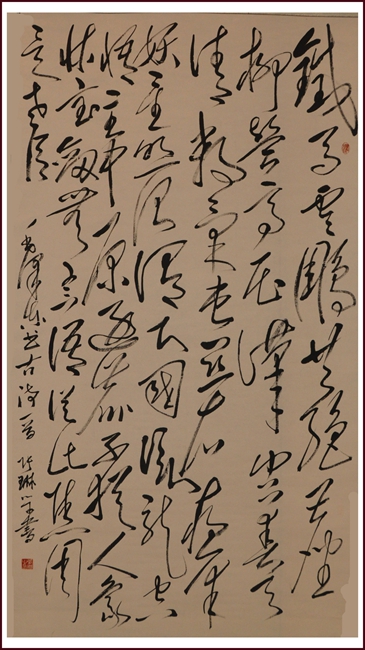 鐵馬雲鵰共絕塵
柳營高壓漢宮春天
清殺氣屯關右夜半
妖星照渭濱下國臥龍空
悟主中原逐鹿不由人象
床寶帳無言語從此譙周
是老臣
古詩一首 琳 書